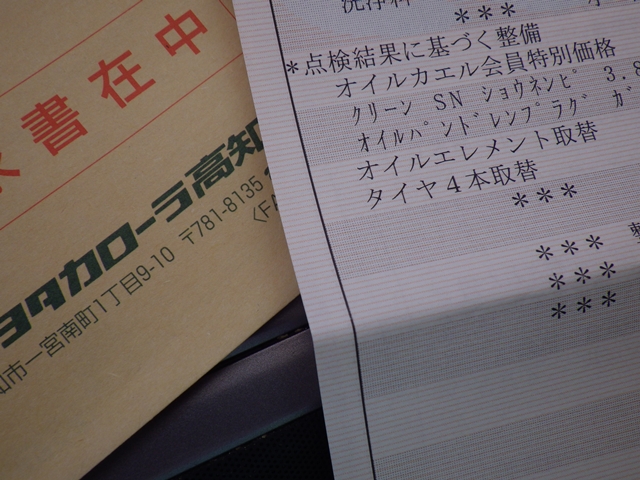 書在中
ヨタカローラ高知
市一宮南町1丁目9-10 〒781-8135
〈FA
洗浄料
***
*点検結果に基づく整備
オイルカエル会員特別価格
クリーン SN ショウネンピ 3.8
オイルパンドレンプラグ ガ
オイルエレメント取替
タイヤ4本取替
***
***
***
***